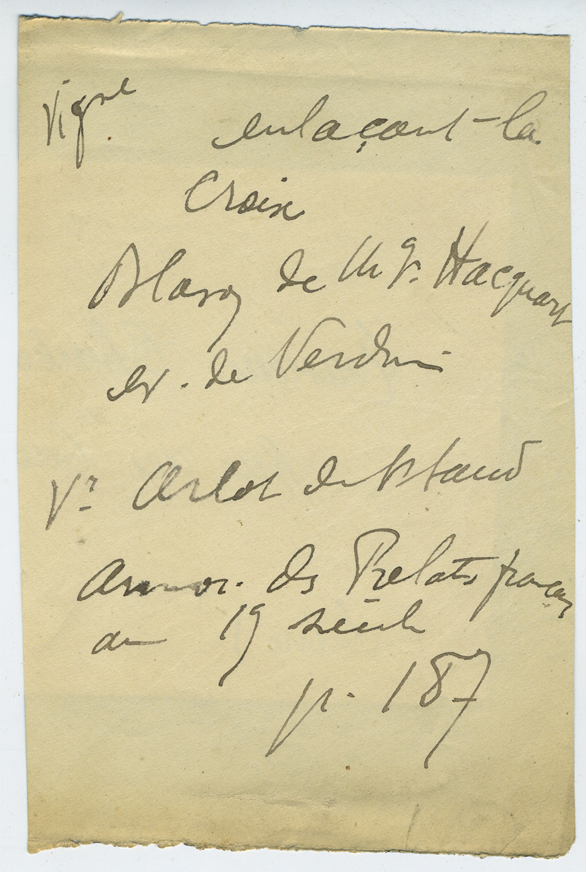 Vigne enlaçant la
Croix
Blason de Mgr. Hacquart
ev. de Verdun
Vr Arlot de St Saud
Armor. des Prelats français
du 19 siècle
p. 187